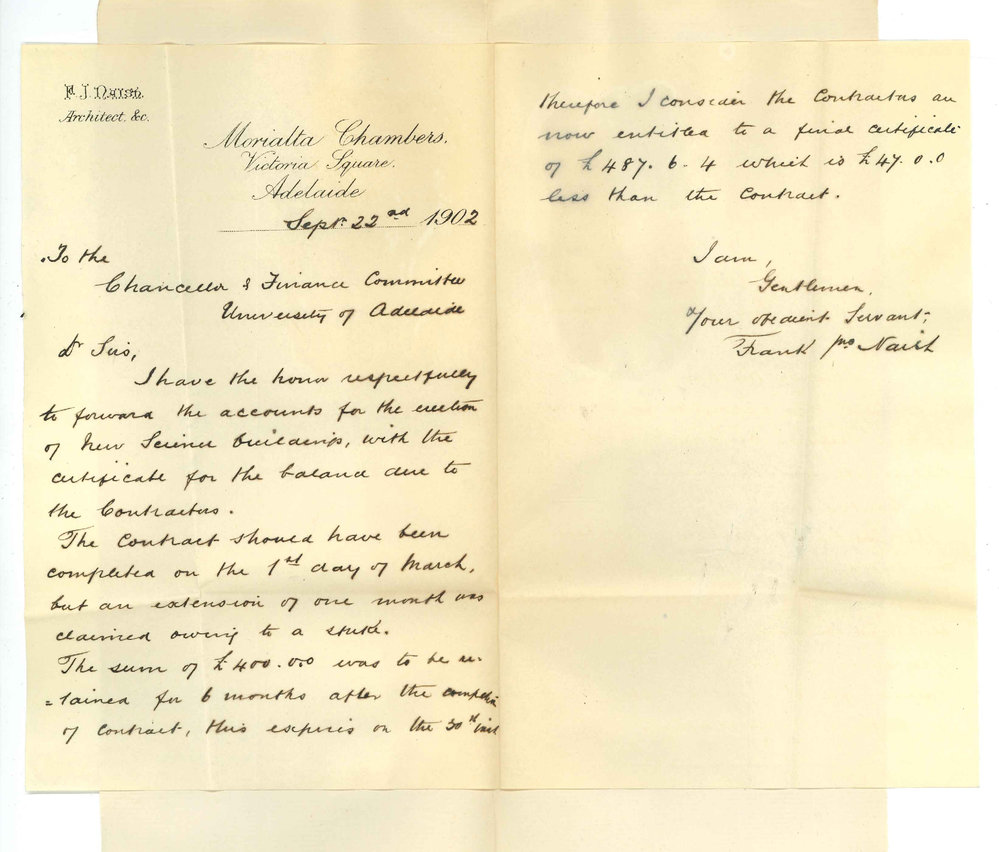 F. J. Naish.
Architect, &c.
Morialta Chambers.
Victoria Square.
Adelaide
Sept. 22nd 1902
To the
Chancellor & Finance Committee
University of Adelaide
Dr Sirs,
I have the honor respectfully
to forward the accounts for the erection
of New Science buildings, with the
certificate for the balance due to
the Contractors.
The Contract should have been
completed on the 1st day of March,
but an extension of one month was
claimed owing to a strike.
The sum of £400.0.0 was to be re-
=tained for 6 months after the completion
of contract, this expires on the 30th inst
therefore I consider the Contractors are
now entitled to a final certificate
of £487.6.4 which is £47.0.0
less than the Contract.
I am,
Gentlemen,
Your obedient Servant,
Frank Jno Naish